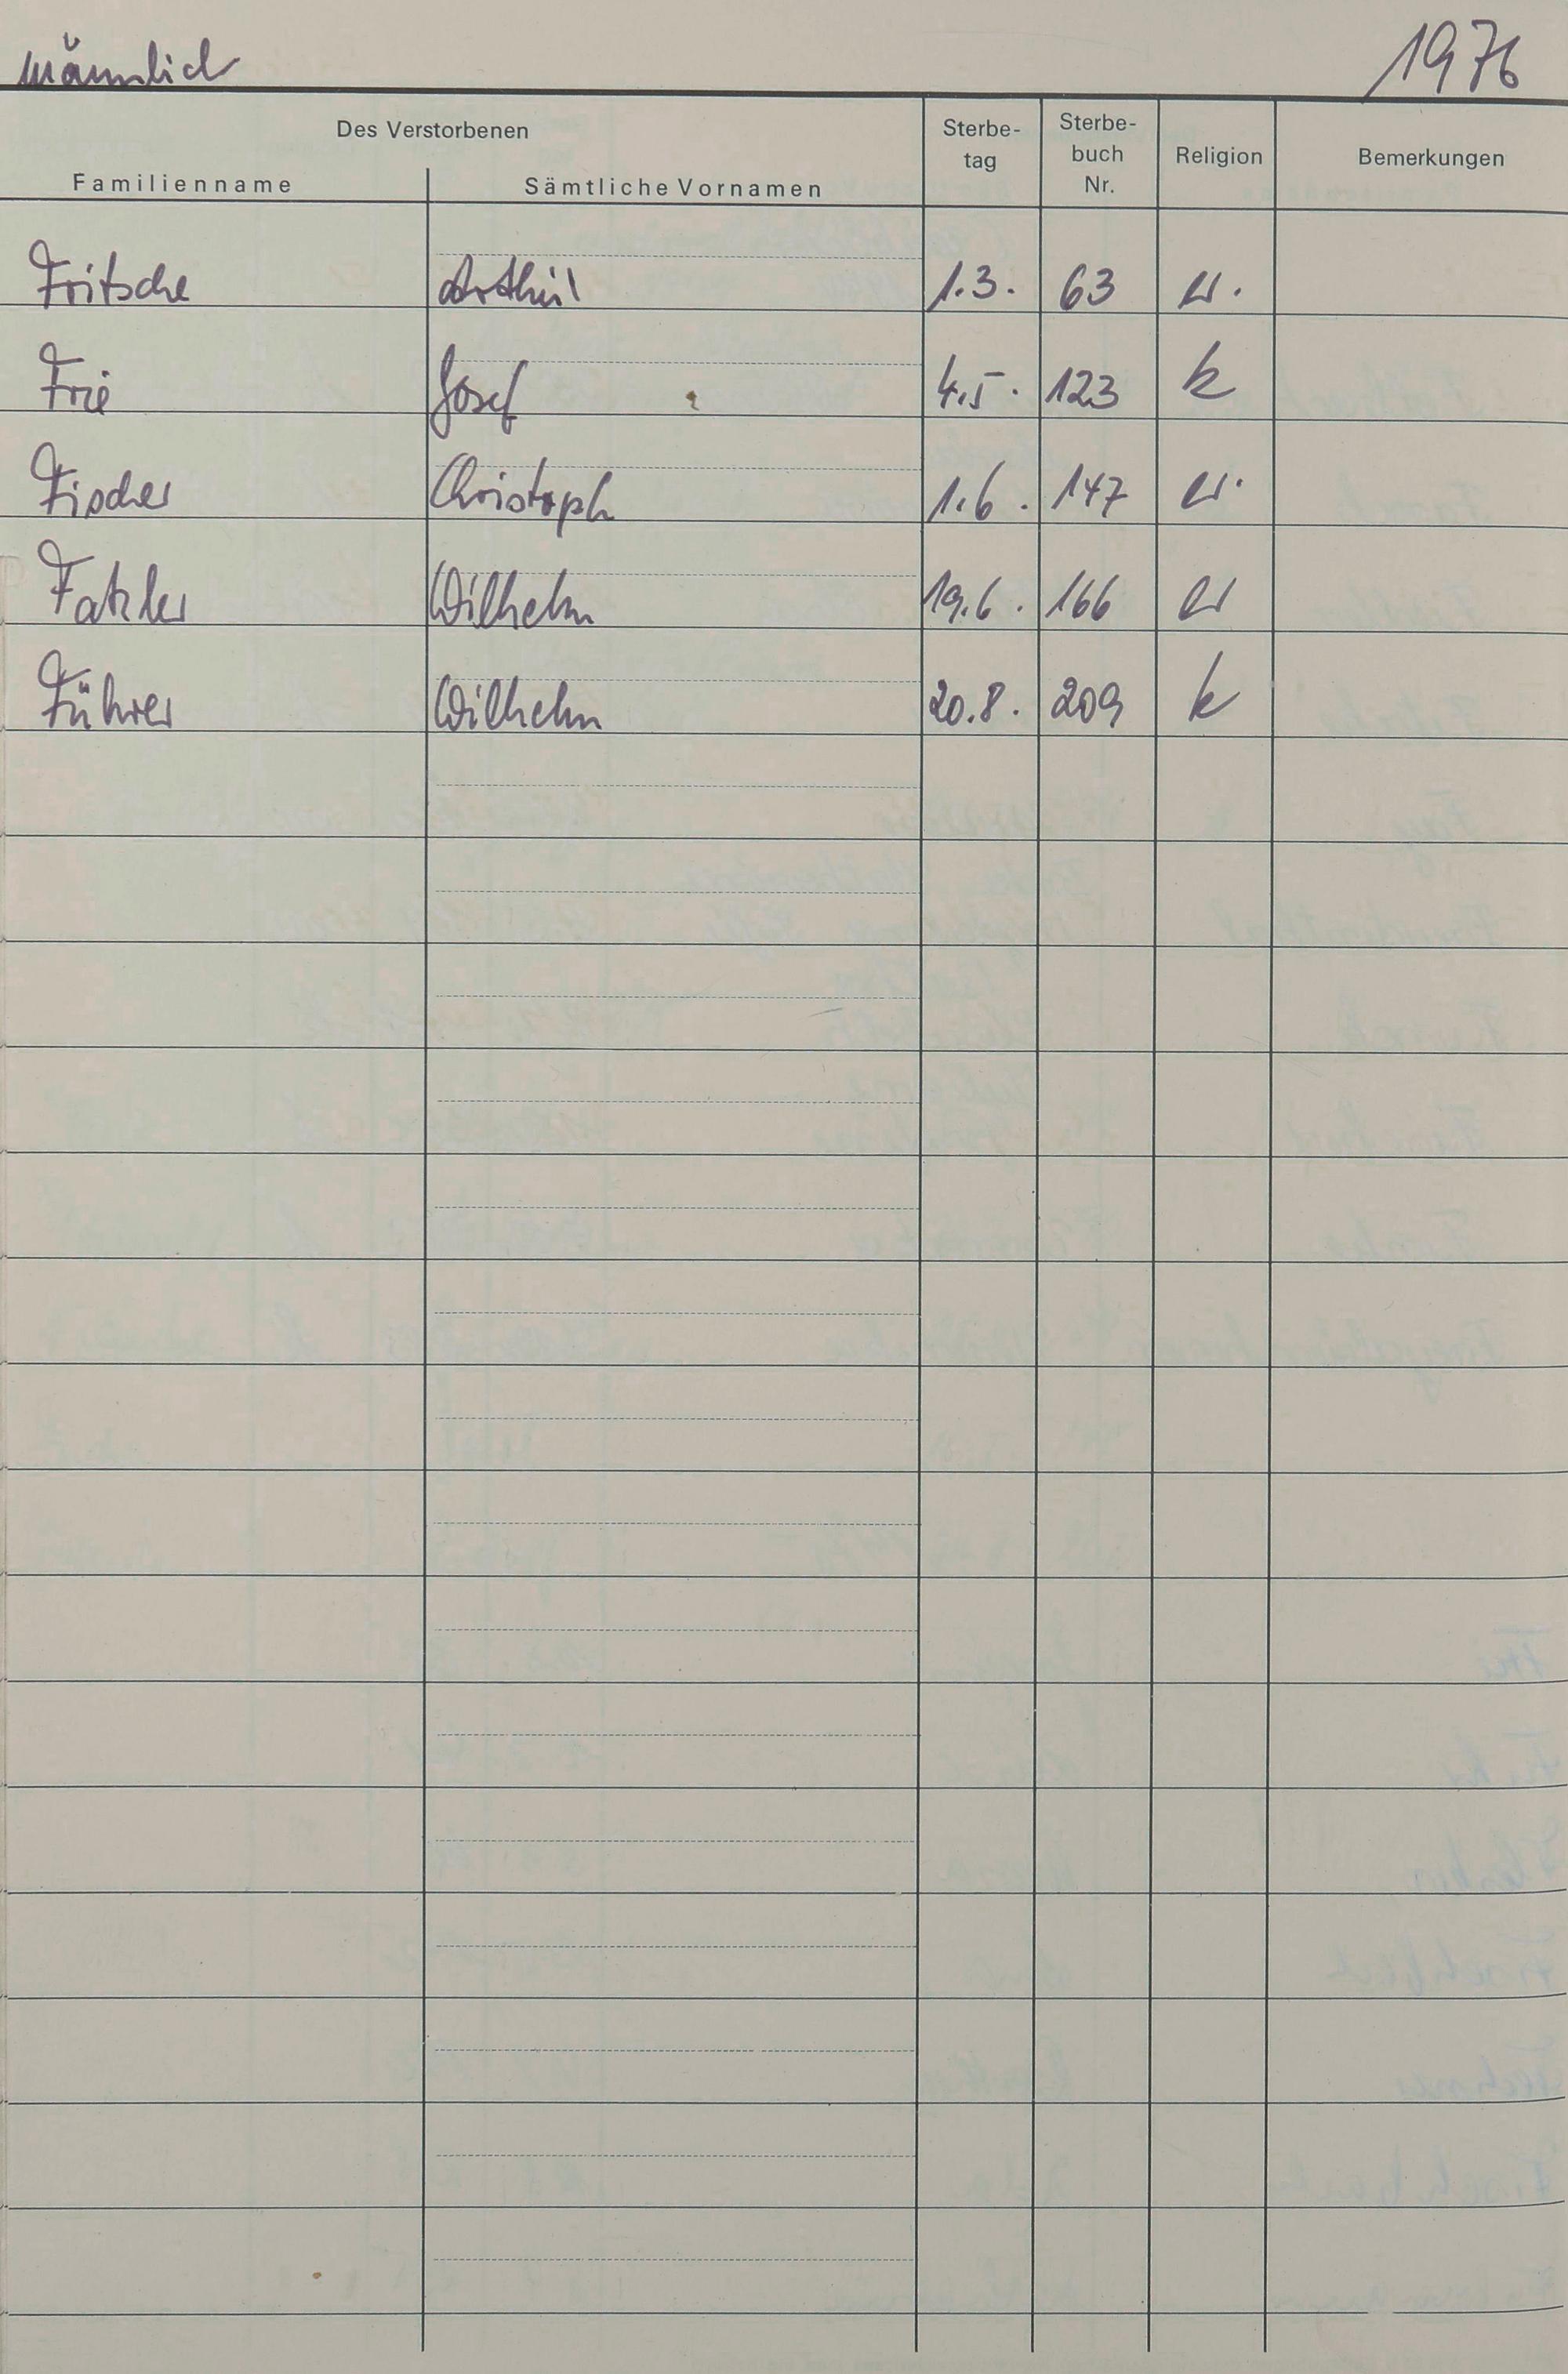 männlich 1976
Des Verstorbenen Sterbe- Sterbe-
tag buch Religion Bemerkungen
Familienname Sämtliche Vornamen Nr.
Fritsche Arthur 1.3. 63 ev.
Frie Josef 4.5. 123 k
Fischer Christoph 1.6. 147 ev.
Fatzler Wilhelm 19.6. 166 ev
Führer Wilhelm 20.8. 209 k